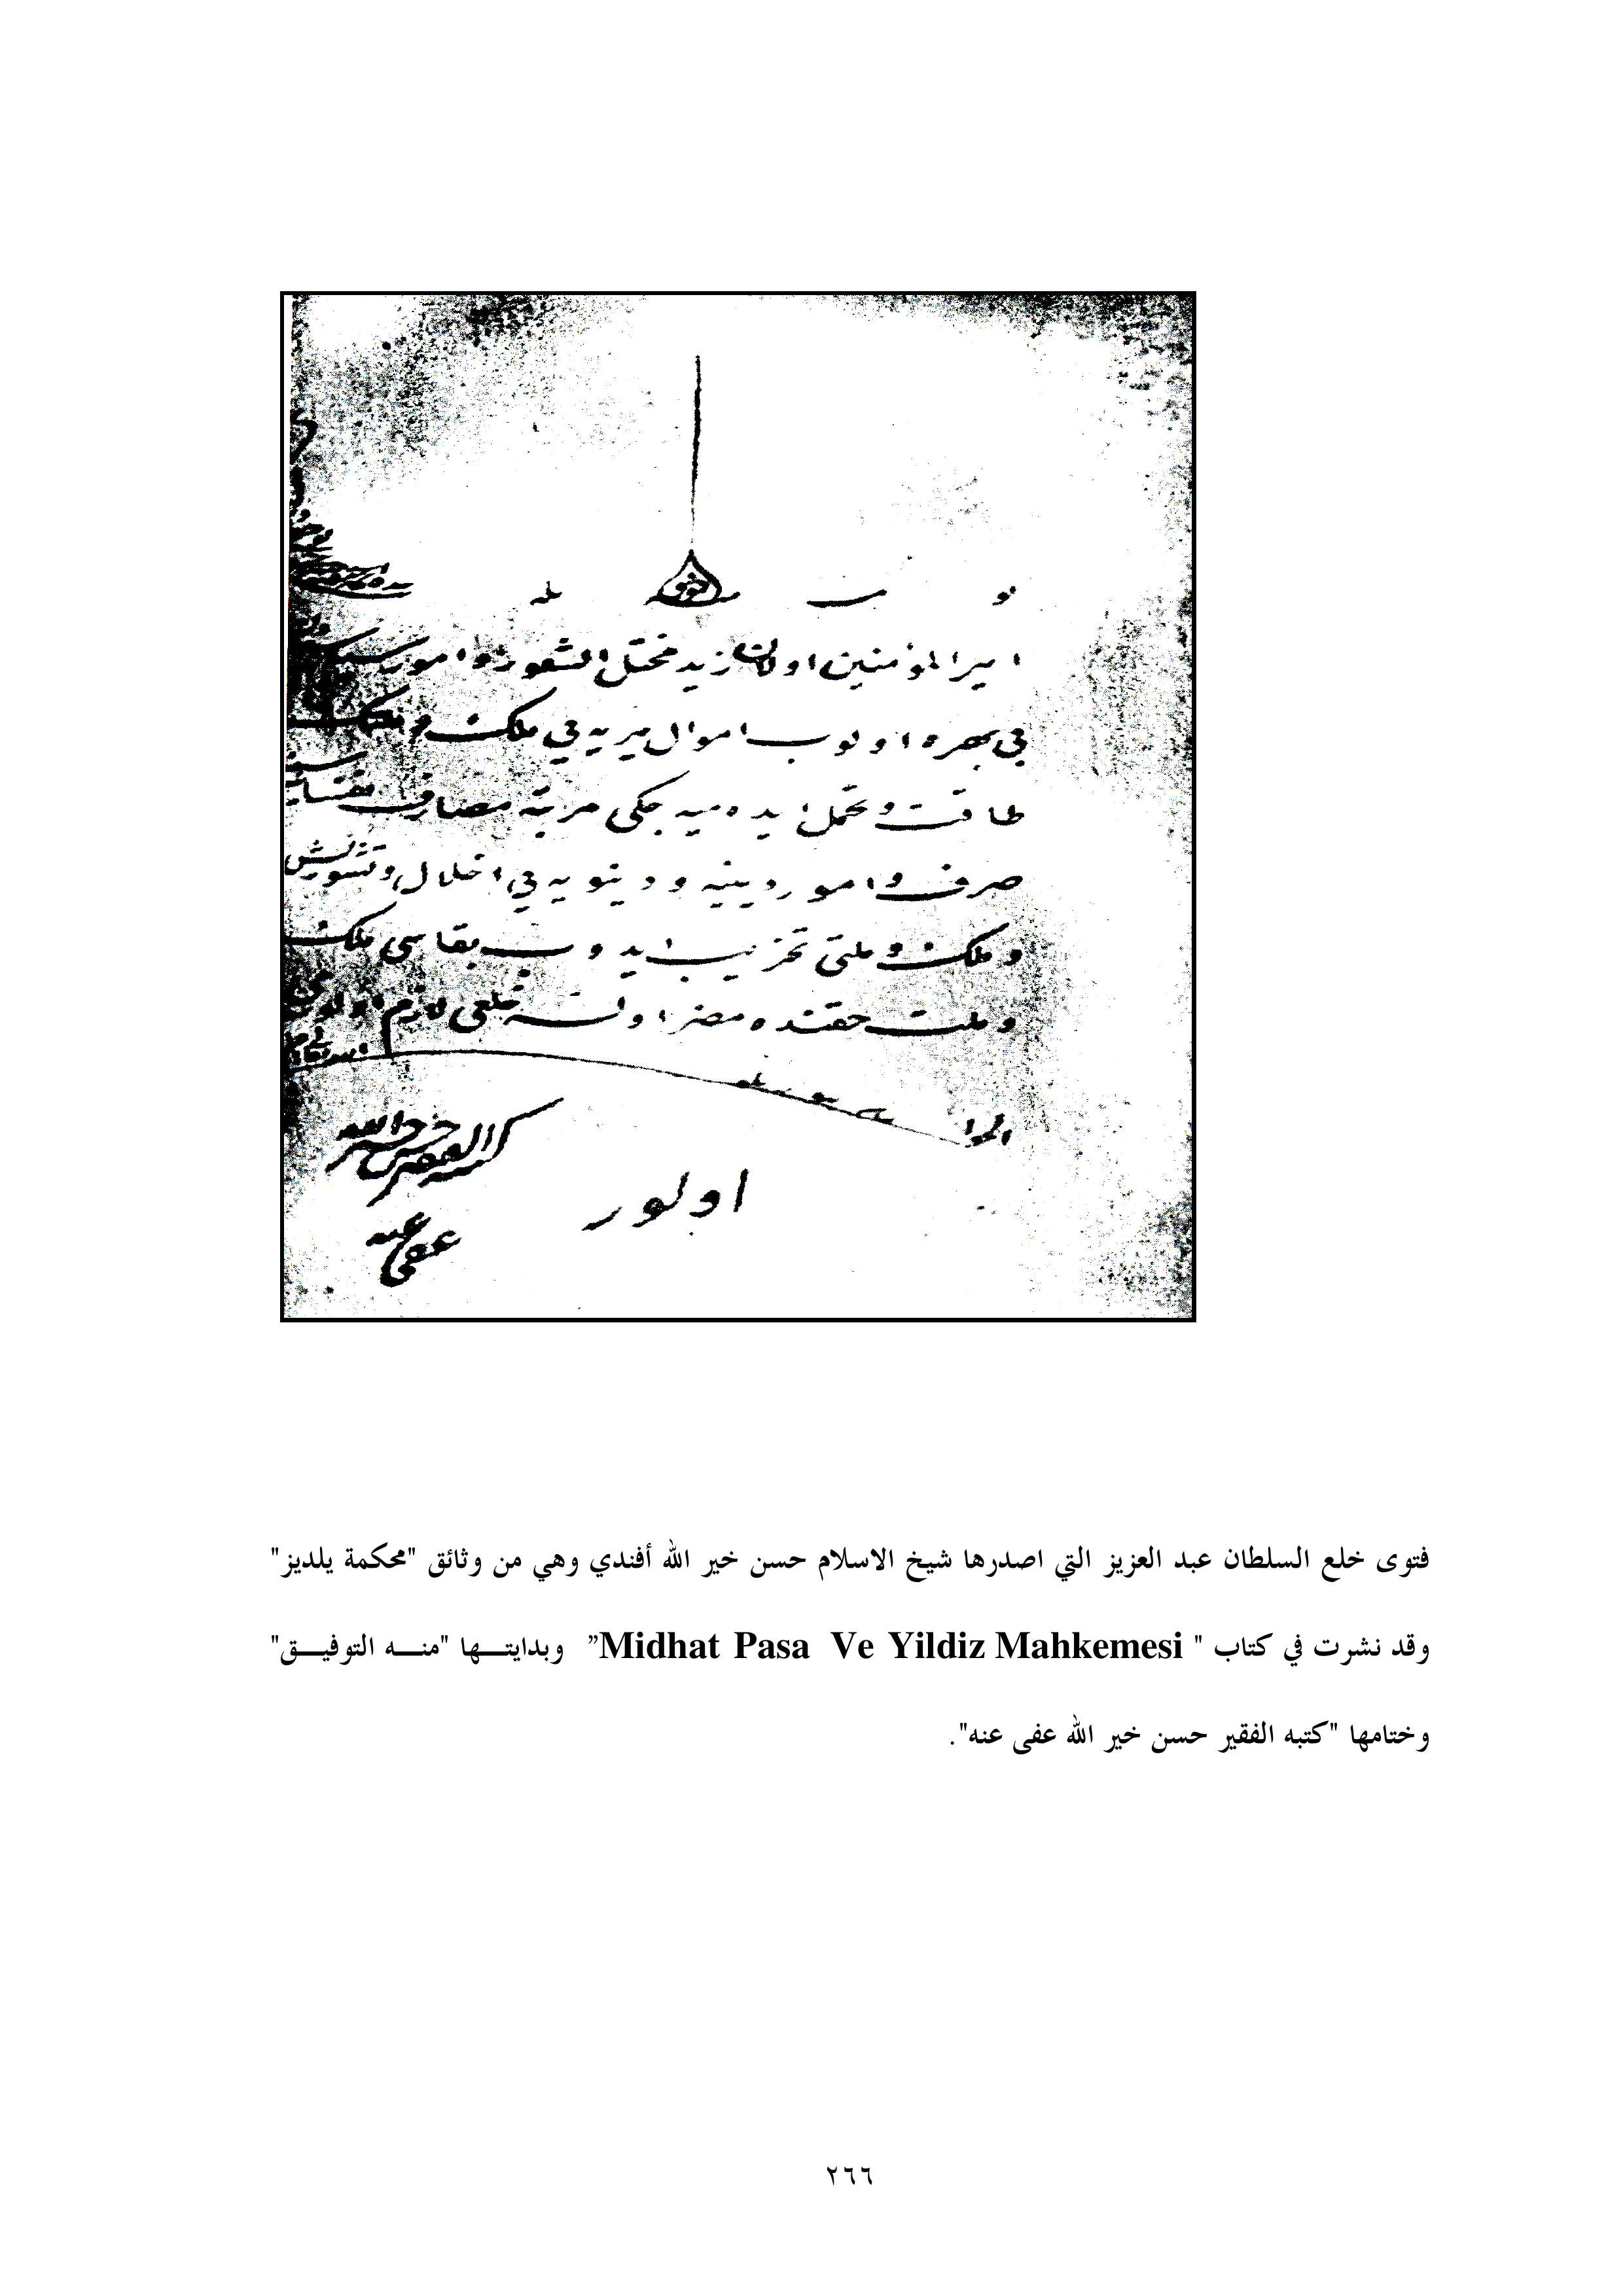 امير المؤمنين اولان زيد مختل الشعور و امور
بى بهره اولوب اموال ميريه يى ملك و
طاقت و تحمل ايده ميه جكى مرتبه مصارف
صرف و امور دينيه و دنيويه يى اخلال و تشويش
و ملك و ملتى تخريب ايدوب بقاسى ملك
و ملت حقنده مضر اولسه خلعى لازم اولور
الجوا
اولور
كتبه الفقير حسن خير الله
عفى عنه
فتوى خلع السلطان عبد العزيز التي اصدرها شيخ الاسلام حسن خير الله أفندي وهي من وثائق "محكمة يلديز"
وقد نشرت في كتاب " Midhat Pasa Ve Yildiz Mahkemesi” وبدايتـــها "منـــه التوفيـــق"
وختامها "كتبه الفقير حسن خير الله عفى عنه".
٢٦٦